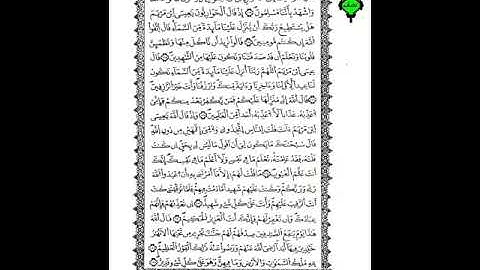 وَاشْهَدْ بِأَنَّنَا مُسْلِمُونَ إِذْ قَالَ الْحَوَارِيُّونَ يَٰعِيسَى ابْنَ مَرْيَمَ
هَلْ يَسْتَطِيعُ رَبُّكَ أَنْ يُنَزِّلَ عَلَيْنَا مَآئِدَةً مِّنَ السَّمَآءِ قَالَ اتَّقُوا
اللَّهَ إِن كُنتُم مُّؤْمِنِينَ قَالُوا نُرِيدُ أَن نَّأْكُلَ مِنْهَا وَتَطْمَئِنَّ
قُلُوبُنَا وَنَعْلَمَ أَن قَدْ صَدَقْتَنَا وَنَكُونَ عَلَيْهَا مِنَ الشَّٰهِدِينَ قَالَ
عِيسَى ابْنُ مَرْيَمَ اللَّهُمَّ رَبَّنَآ أَنزِلْ عَلَيْنَا مَآئِدَةً مِّنَ السَّمَآءِ تَكُونُ
لَنَا عِيدًا لِّأَوَّلِنَا وَءَاخِرِنَا وَءَايَةً مِّنكَ وَارْزُقْنَا وَأَنتَ خَيْرُ الرَّٰزِقِينَ
قَالَ اللَّهُ إِنِّي مُنَزِّلُهَا عَلَيْكُمْ فَمَن يَكْفُرْ بَعْدُ مِنكُمْ فَإِنِّي
أُعَذِّبُهُ عَذَابًا لَّا أُعَذِّبُهُ أَحَدًا مِّنَ الْعَٰلَمِينَ وَإِذْ قَالَ اللَّهُ يَٰعِيسَى
ابْنَ مَرْيَمَ ءَأَنتَ قُلْتَ لِلنَّاسِ اتَّخِذُونِي وَأُمِّيَ إِلَٰهَيْنِ مِن دُونِ اللَّهِ
قَالَ سُبْحَٰنَكَ مَا يَكُونُ لِي أَنْ أَقُولَ مَا لَيْسَ لِي بِحَقٍّ إِن كُنتُ
قُلْتُهُ فَقَدْ عَلِمْتَهُ تَعْلَمُ مَا فِي نَفْسِي وَلَا أَعْلَمُ مَا فِي نَفْسِكَ إِنَّكَ
أَنتَ عَلَّٰمُ الْغُيُوبِ مَا قُلْتُ لَهُمْ إِلَّا مَا أَمَرْتَنِي بِهِ أَنِ اعْبُدُوا اللَّهَ
رَبِّي وَرَبَّكُمْ وَكُنتُ عَلَيْهِمْ شَهِيدًا مَّا دُمْتُ فِيهِمْ فَلَمَّا تَوَفَّيْتَنِي كُنتَ
أَنتَ الرَّقِيبَ عَلَيْهِمْ وَأَنتَ عَلَىٰ كُلِّ شَيْءٍ شَهِيدٌ إِن تُعَذِّبْهُمْ فَإِنَّهُمْ
عِبَادُكَ وَإِن تَغْفِرْ لَهُمْ فَإِنَّكَ أَنتَ الْعَزِيزُ الْحَكِيمُ قَالَ اللَّهُ
هَٰذَا يَوْمُ يَنفَعُ الصَّٰدِقِينَ صِدْقُهُمْ لَهُمْ جَنَّٰتٌ تَجْرِي مِن تَحْتِهَا الْأَنْهَٰرُ
خَٰلِدِينَ فِيهَا أَبَدًا رَّضِيَ اللَّهُ عَنْهُمْ وَرَضُوا عَنْهُ ذَٰلِكَ الْفَوْزُ الْعَظِيمُ
لِلَّهِ مُلْكُ السَّمَٰوَٰتِ وَالْأَرْضِ وَمَا فِيهِنَّ وَهُوَ عَلَىٰ كُلِّ شَيْءٍ قَدِيرٌ